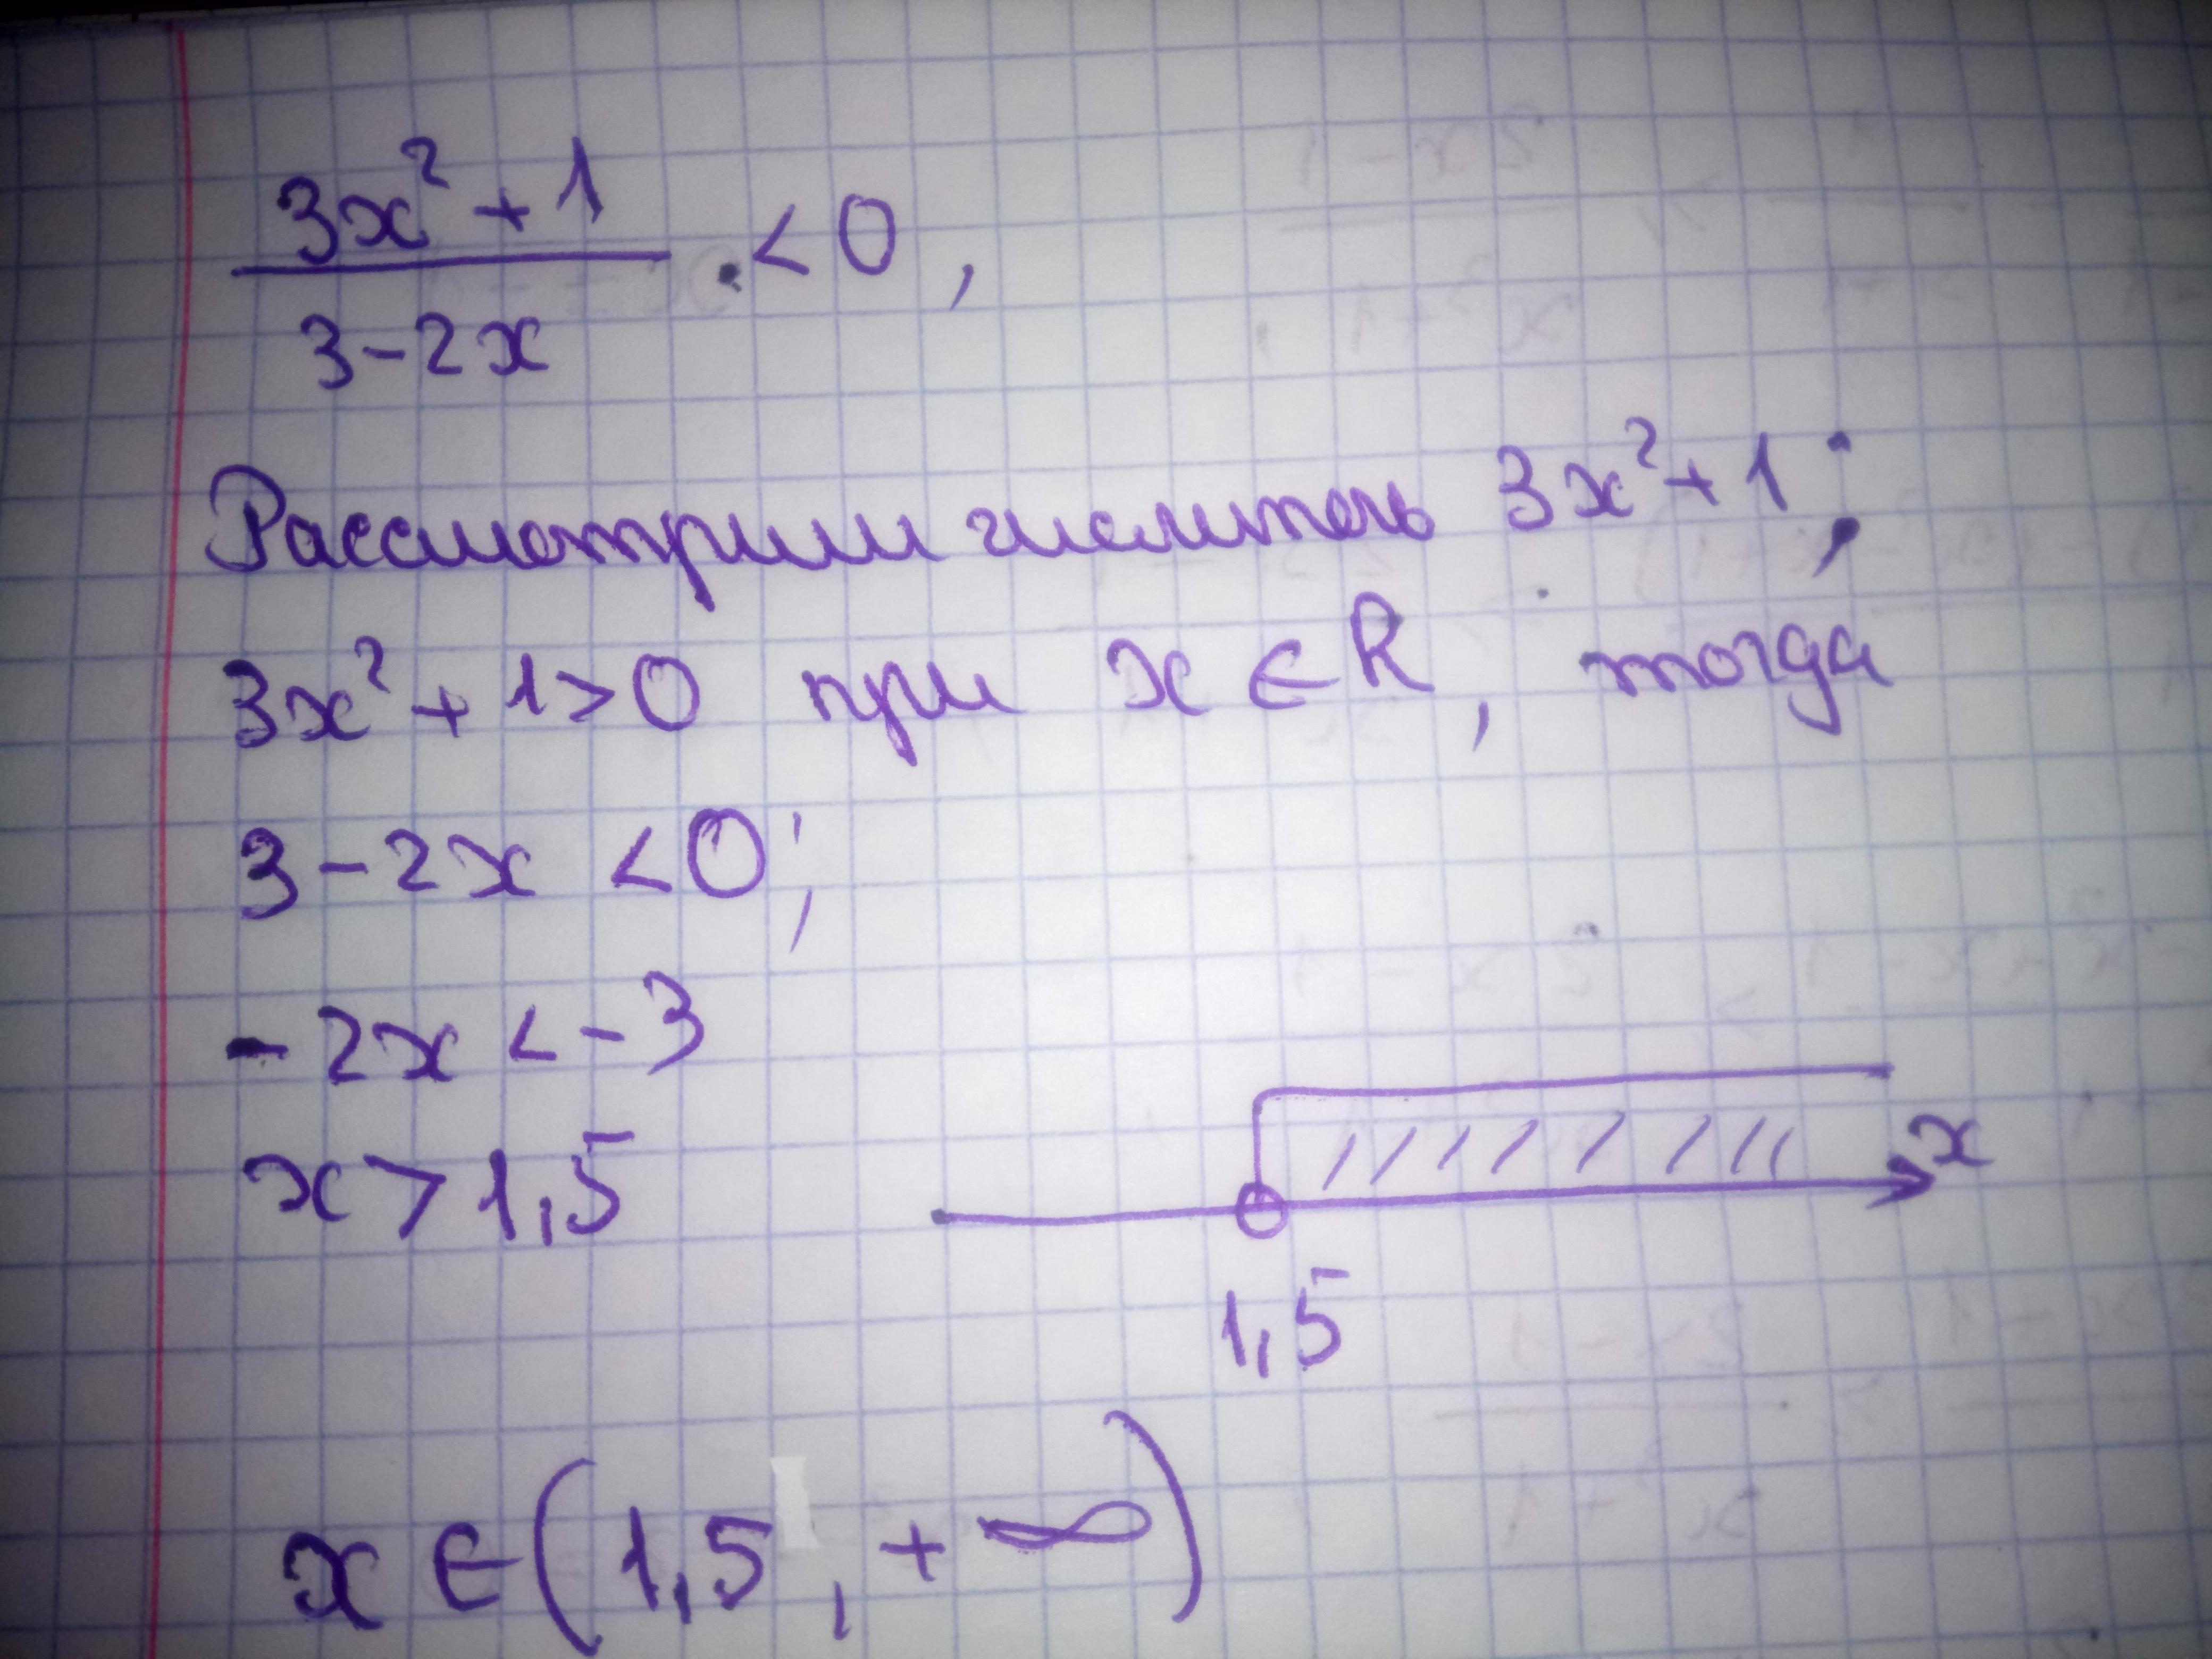 3x² + 1
3 - 2x
< 0,
Рассмотрим числитель 3x² + 1;
3x² + 1 > 0 при x ∈ R, тогда
3 - 2x < 0;
- 2x < - 3
x > 1,5
x
1,5
x ∈ (1,5, + ∞)